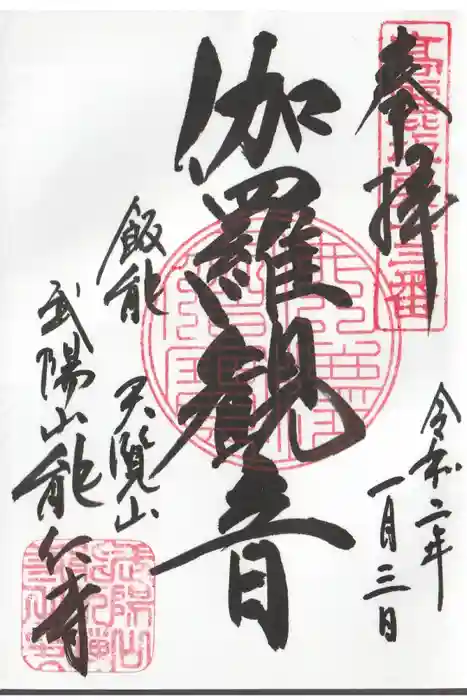 奉拝
令和二年
一月三日
伽羅観音
飯能
天覧山
武陽山能仁寺